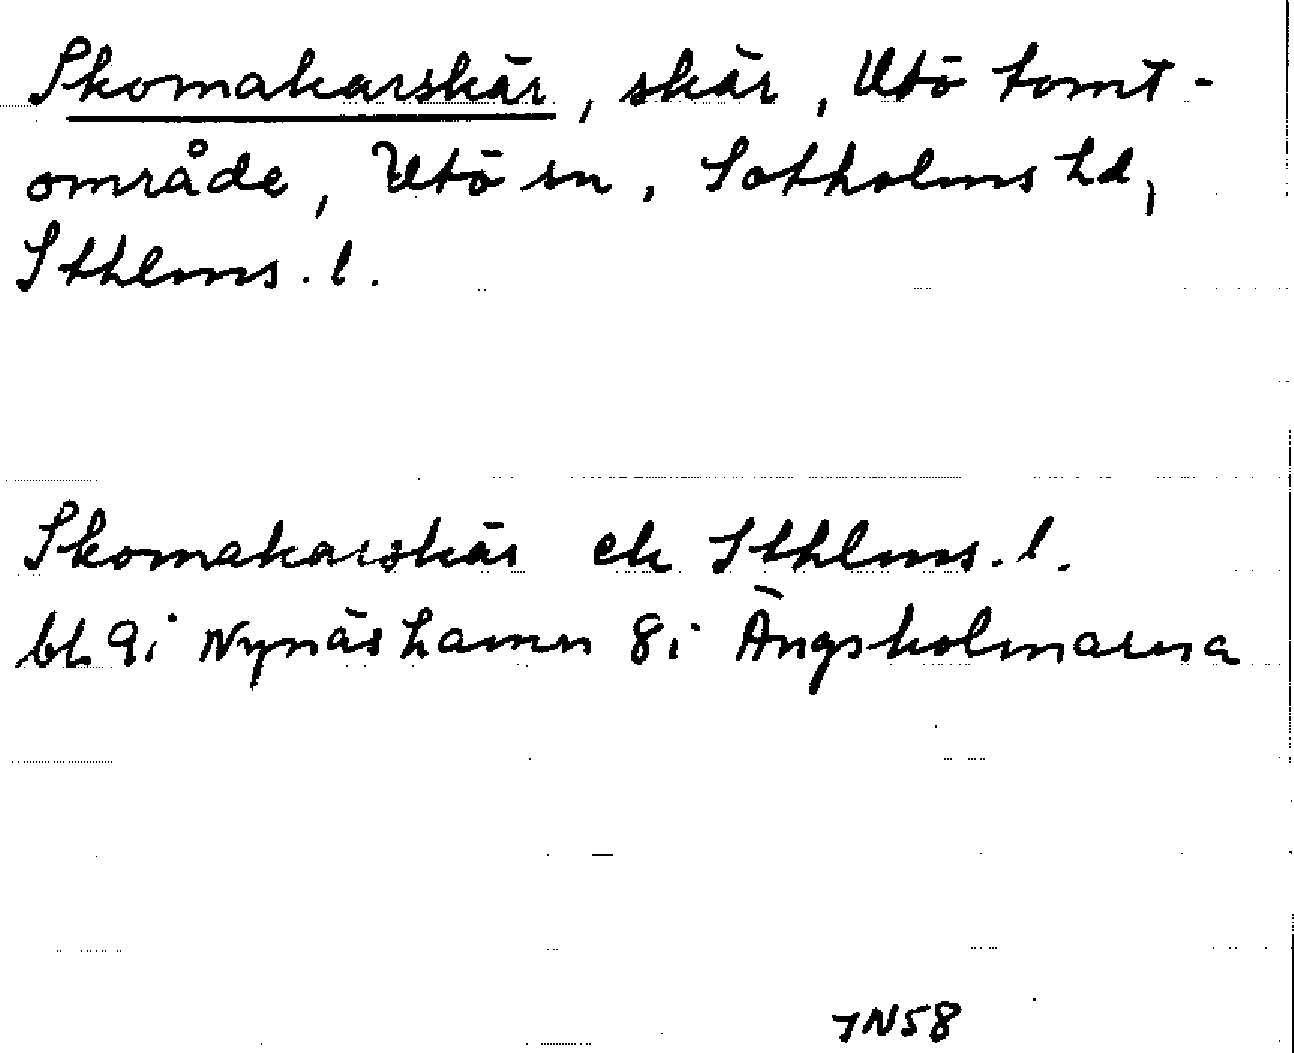 Skomakarskär, skär, Utö tomt-
område, Utö sn, Sotholms hd,
Sthlms. l.
Skomakarskär ek Sthlms. l.
bl. 9i Nynäshamn 8i Ängsholmarna
JN58